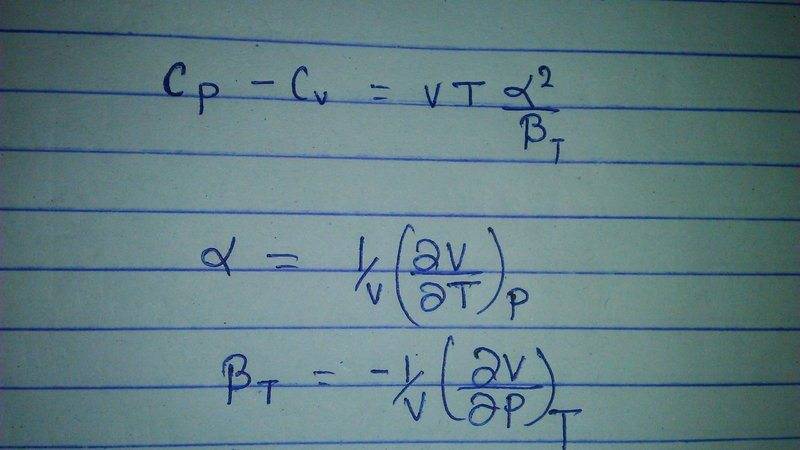 Cp - Cv = VT α²/βT
α = 1/V (∂V/∂T)P
βT = -1/V (∂V/∂P)T